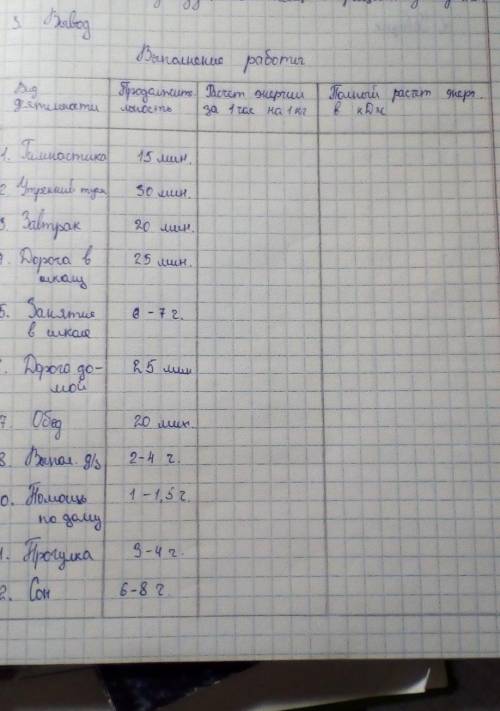 3. Вывод
Выполнение работы
Вид Продолжите- Расчет энергии Полный расчет энерг.
деятельности льность за 1 час на 1 кг в кДж
1. Гимнастика 15 мин.
2. Утренний туал 30 мин.
3. Завтрак 20 мин.
Дорога в 25 мин.
школу
5. Занятия 6-7 г.
в школе
Дорога до- 25 мин
мой
7. Обед 20 мин.
8. Выпол. д/з 2-4 г.
0. Помощь 1-1,5 г.
по дому
1. Прогулка 3-4 г.
2. Сон 6-8 г